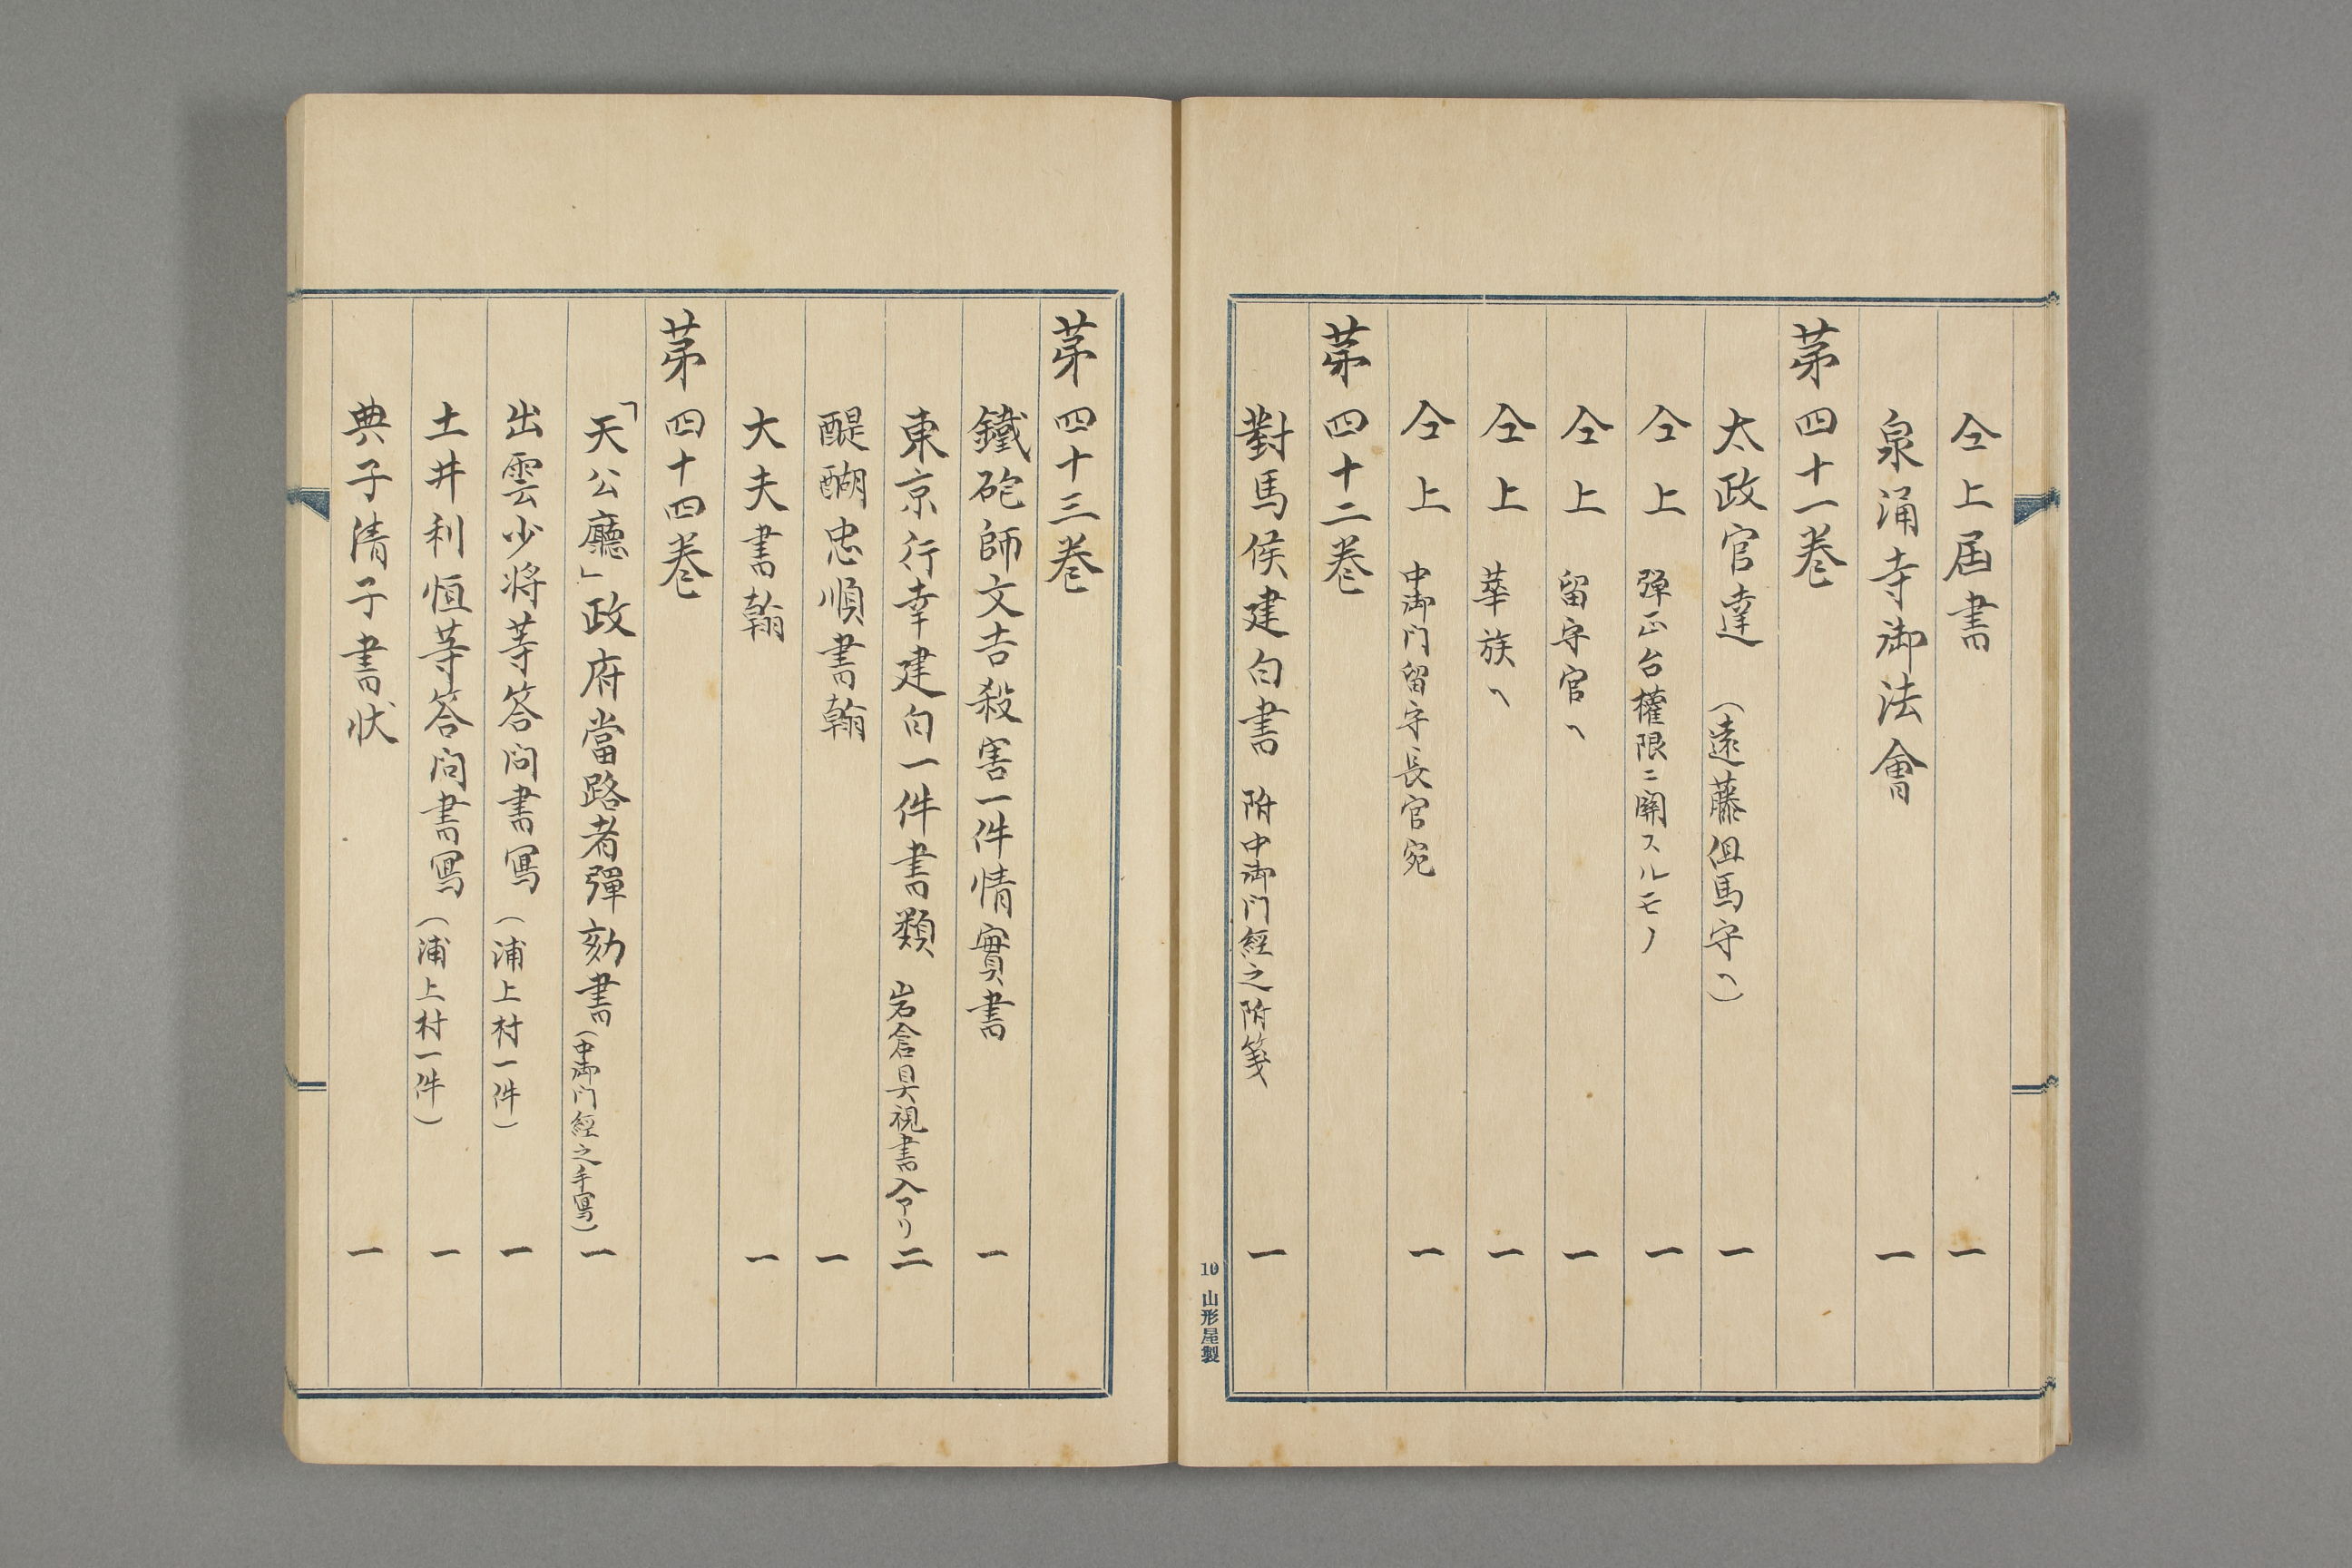 仝上届書 一
泉涌寺御法會 一
苐四十一巻
太政官達 (遠藤但馬守ヘ) 一
仝上 彈正台權限ニ関スルモノ 一
仝上 留守官ヘ 一
仝上 華族ヘ 一
仝上 中御门留守長官宛 一
苐四十二巻
對馬侯建白書 附中御门經之附箋 一
10 山形屋製
苐四十三巻
鐵砲師文吉殺害一件情實書 一
東京行幸建白一件書類 岩倉具視書入アリ 二
醍醐忠順書翰 一
大夫書翰 一
苐四十四巻
「天公廳」政府當路者彈劾書(中御门經之手寫) 一
出雲少将等答问書寫(浦上村一件) 一
土井利恒等答问書寫(浦上村一件) 一
典子清子書状 一